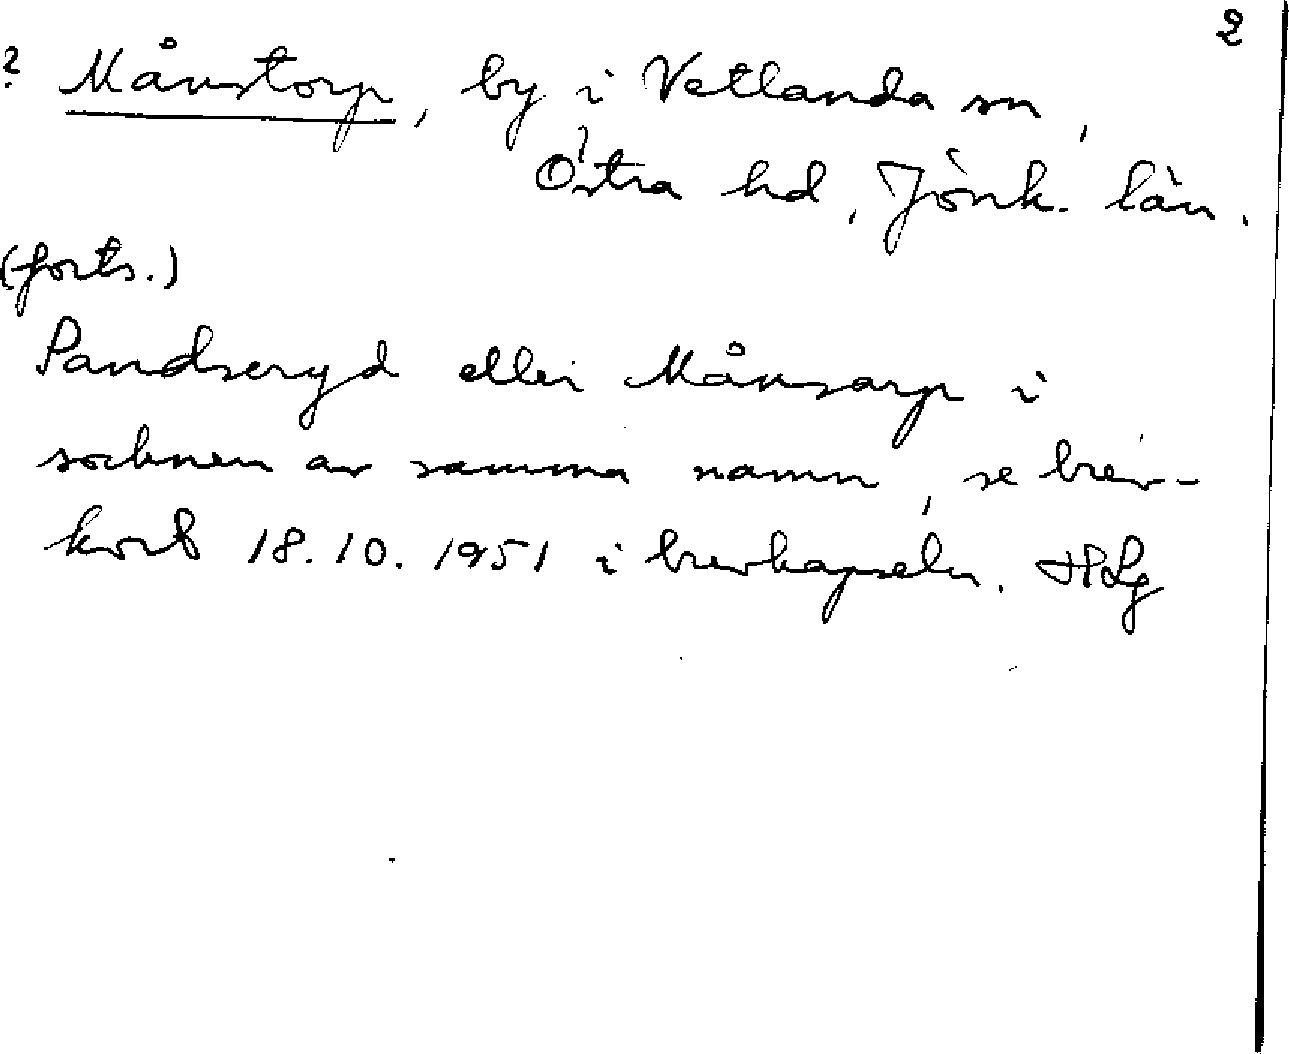 2
? Månstorp, by i Vetlanda sn,
Östra hd, Jönk. län.
(forts.)
Sandseryd eller Månsarp i
socknen av samma namn, se brev-
kort 18.10.1951 i brevkapseln. HLg